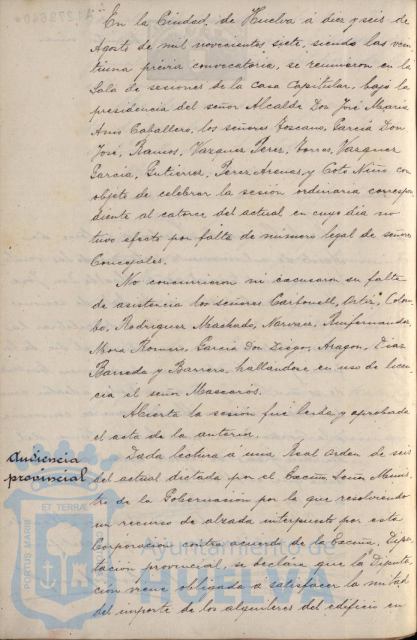 En la Ciudad de Huelva á diez y seis de
Agosto de mil novecientos siete, siendo las vein
tiuna prévia convocatoria, se reunieron en la
Sala de sesiones de la casa Capitular, bajo la
presidencia del señor Alcalde Don José Maria
Amo Caballero, los señores Toscano, Garcia Don
José, Ramos, Vazquez Perez, Torres, Vazquez
Garcia, Gutierrez, Perez Arenas, y Coto Niño con
objeto de celebrar la sesión ordinaria correspon
diente al catorce del actual en cuyo dia no
tuvo efecto por falta de número legal de señores
Concejales.
No concurrieron ni excusaron su falta
de asistencia los señores Carbonell, Ortiz, Colom
bo, Rodriguez Machado, Narvaez, Renfernandez,
Mora Romero, Garcia Don Diego, Aragon, Diaz
Barreda y Barrero, hallandose en uso de licen
cia el señor Mascarós.
Abierta la sesión fué leida y aprobada
el acta de la anterior.
Audiencia
provincial
Dada lectura a una Real orden de seis
del actual dictada por el Excmo Señor Minis
tro de la Gobernación por la que resolviendo
un recurso de alzada interpuesto por esta
Corporación contra acuerdo de la Excma. Dipu
tación provincial, se declara que la Diputa
cion viene obligada a satisfacer la mitad
del importe de los alquileres del edificio en
PORTUS MARIS ET TERRAE
Ayuntamiento de
HUELVA